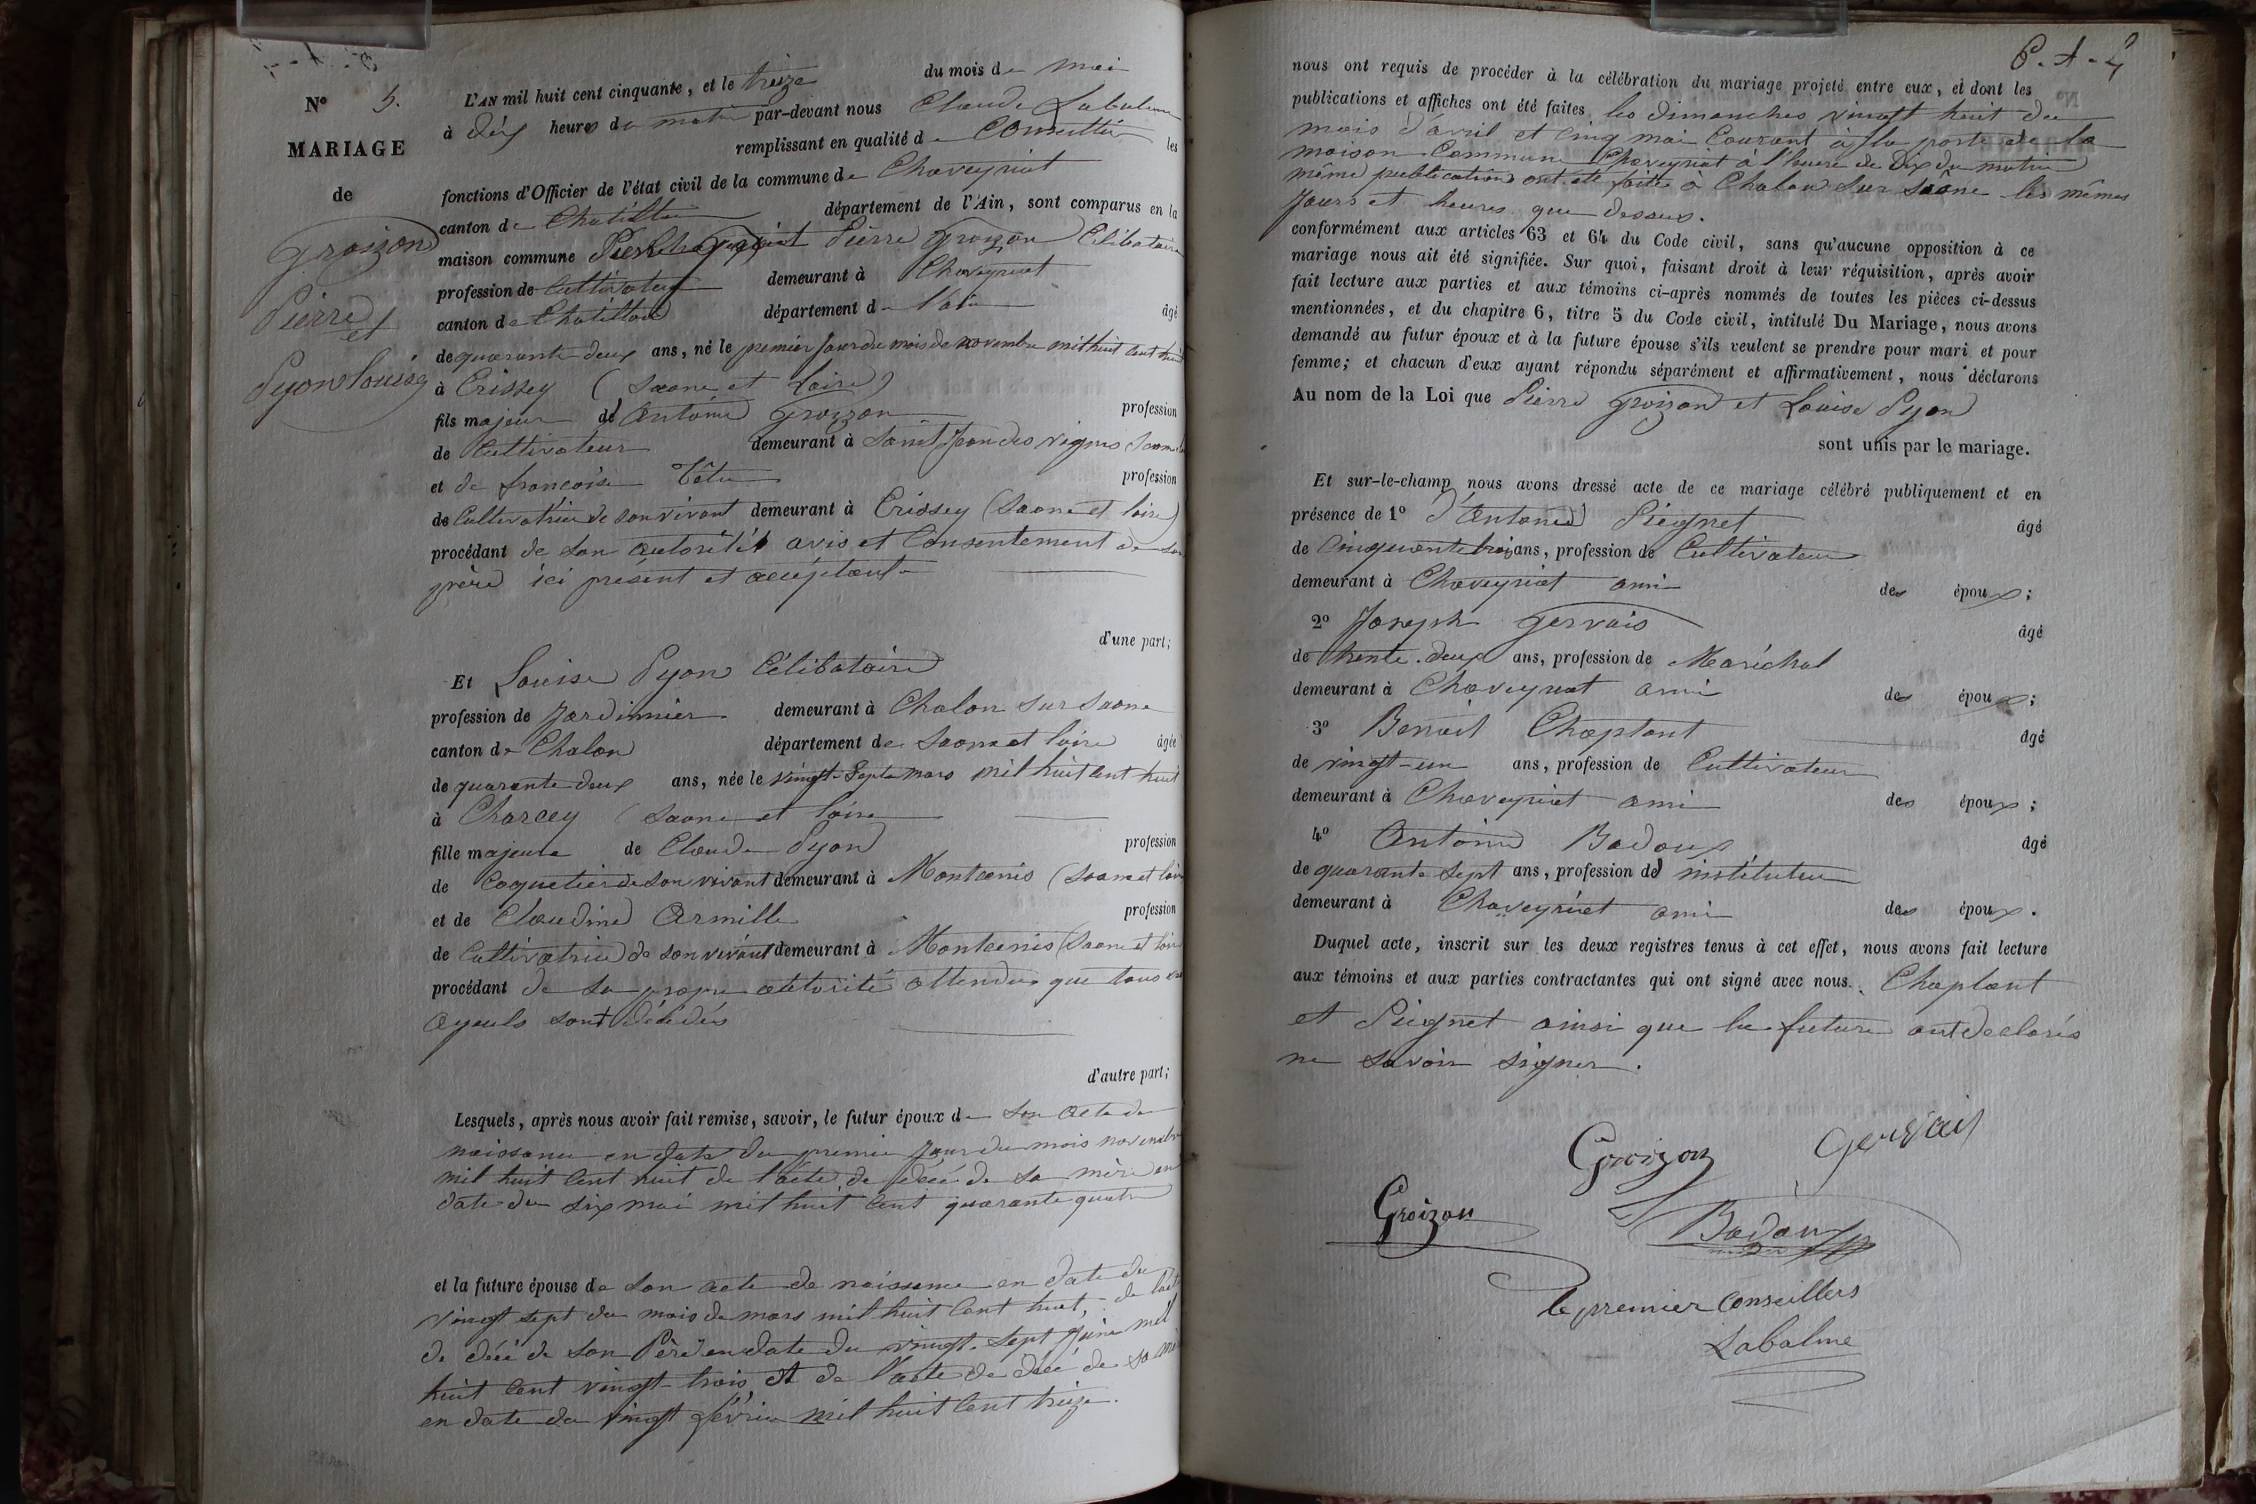 N° 5.
MARIAGE
de
Groizon
Pierre
et
Pyon Louise
L'AN mil huit cent cinquante, et le treize du mois de mai
à dix heures du matin par-devant nous Claude Labalme
remplissant en qualité de Conseiller les
fonctions d'Officier de l'état civil de la commune de Chaveyriat
canton de Chatillon département de l'Ain, sont comparus en la
maison commune Pierre Groizon Célibataire
profession de Cultivateur demeurant à Chaveyriat
canton de Chatillon département de l'ain âgé
de quarante deux ans, né le premier jour du mois de novembre mil huit cent huit
à Crissey (Saone et Loire)
fils majeur de Antoine Groizon profession
de Cultivateur demeurant à Saint Jean des vignes Saone
et de francoise Têtu profession
de Cultivatrice de son vivant demeurant à Crissey (Saone et loire)
procédant de son autorité avis et Consentement de son
père ici présent et acceptant
d'une part;
Et Louise Pyon Célibataire
profession de Jardinier demeurant à Chalon sur Saone
canton de Chalon département de Saone et loire âgée
de quarante deux ans, née le vingt-Sept mars mil huit cent huit
à Charcey (Saone et loire
fille majeure de Claude Pyon profession
de Coquetier de son vivant demeurant à Montcenis (Saone et loire
et de Claudine Armille profession
de Cultivatrice de son vivant demeurant à Montcenis (Saone et loire
procédant de sa propre autorité attendu que tous ses
ayeuls sont décédés
d'autre part;
Lesquels, après nous avoir fait remise, savoir, le futur époux de son acte de
naissance en date du premier jour du mois novembre
mil huit cent huit de l'acte de décé de sa mère en
date du six mai mil huit cent quarante quatre
et la future épouse de son acte de naissance en date du
vingt sept du mois de mars mil huit cent huit, de l'acte
de décé de son Père en date du vingt-sept Juin mil
huit cent vingt-trois, et de l'acte de décé de sa mère
en date du vingt février mil huit cent treize.
nous ont requis de procéder à la célébration du mariage projeté entre eux, et dont les
publications et affiches ont été faites les dimanches vingt huit du
mois d'avril et cinq mai Courant à la porte de la
maison Commune Chaveyriat à l'heure de Dix du matin
même publication ont été faite à Chalon sur Saône les mêmes
Jours et heures que dessus.
conformément aux articles 63 et 64 du Code civil, sans qu'aucune opposition à ce
mariage nous ait été signifiée. Sur quoi, faisant droit à leur réquisition, après avoir
fait lecture aux parties et aux témoins ci-après nommés de toutes les pièces ci-dessus
mentionnées, et du chapitre 6, titre 5 du Code civil, intitulé Du Mariage, nous avons
demandé au futur époux et à la future épouse s'ils veulent se prendre pour mari et pour
femme; et chacun d'eux ayant répondu séparément et affirmativement, nous déclarons
Au nom de la Loi que Pierre Groizon et Louise Pyon
sont unis par le mariage.
Et sur-le-champ nous avons dressé acte de ce mariage célébré publiquement et en
présence de 1° d'Antoine Piégnet âgé
de Cinquante trois ans, profession de Cultivateur
demeurant à Chaveyriat ami des époux;
2° Joseph Gervais âgé
de trente-deux ans, profession de Maréchal
demeurant à Chaveyriat ami des époux;
3° Benoit Chaplant âgé
de vingt-un ans, profession de Cultivateur
demeurant à Chaveyriat ami des époux;
4° Antoine Badoux âgé
de quarante sept ans, profession de instituteur
demeurant à Chaveyriat ami des époux.
Duquel acte, inscrit sur les deux registres tenus à cet effet, nous avons fait lecture
aux témoins et aux parties contractantes qui ont signé avec nous. Chaplant
et Piégnet ainsi que la future ont déclarés
ne savoir signer.
Groizon Gervais
Groizon Badoux
le premier Conseillers
Labalme